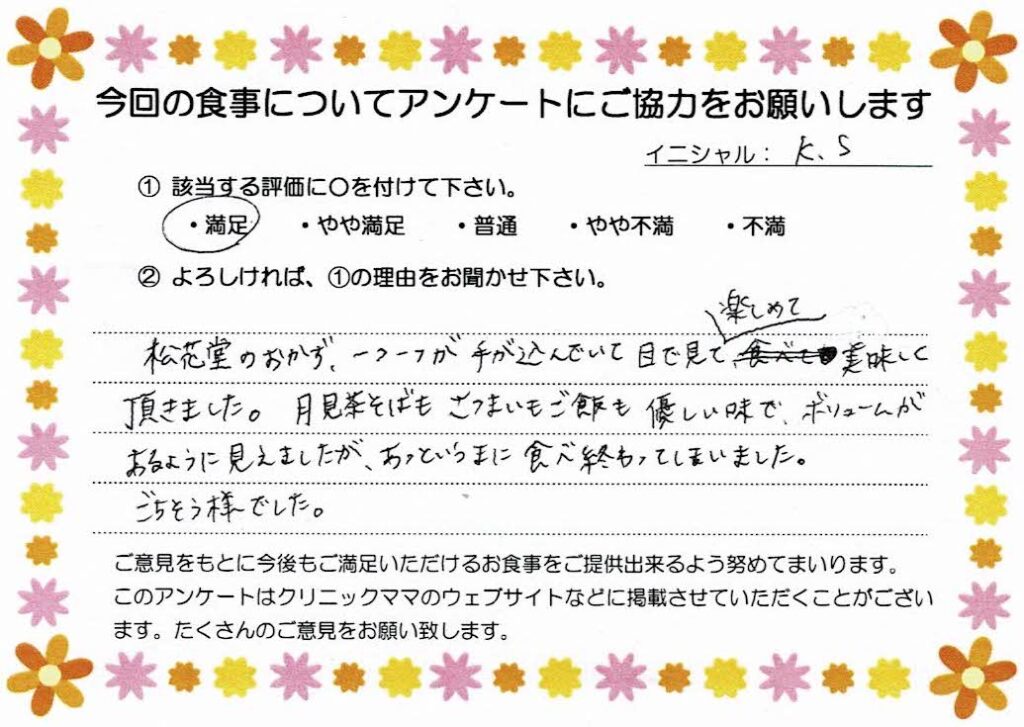 今回の食事についてアンケートにご協力をお願いします
イニシャル： K、S
① 該当する評価に〇を付けて下さい。
・満足 ・やや満足 ・普通 ・やや不満 ・不満
② よろしければ、①の理由をお聞かせ下さい。
楽しめて
松花堂のおかず、一つ一つが手が込んでいて目で見て、食べても美味しく
頂きました。月見茶そばもさつまいもご飯も優しい味で、ボリュームが
あるように見えましたが、あっというまに食べ終わってしまいました。
ごちそう様でした。
ご意見をもとに今後もご満足いただけるお食事をご提供出来るよう努めてまいります。
このアンケートはクリニックママのウェブサイトなどに掲載させていただくことがござい
ます。たくさんのご意見をお願い致します。